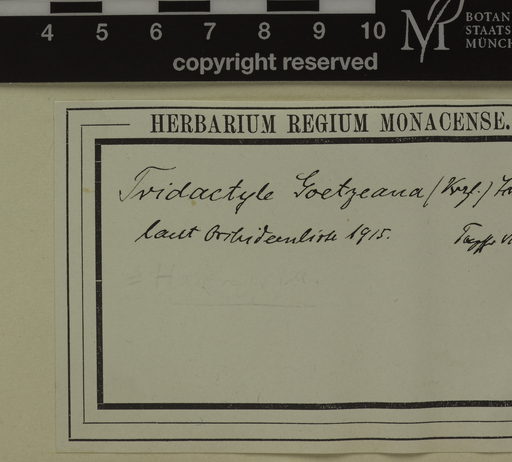 4 5 6 7 8 9 10
BOTAN
STAATS
MÜNCH
copyright reserved
HERBARIUM REGIUM MONACENSE.
Tridactyle Goetzeana (Krzl.)
laut Orchideenliste 1915.